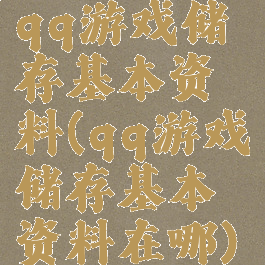 qq游戏储
存基本资
料(qq游戏
储存基本
资料在哪)